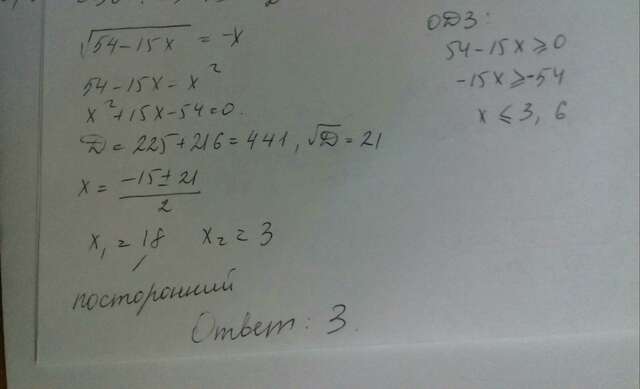 √54-15x = -x
54-15x-x²
x²+15x-54=0.
D = 225+216=441, √D=21
x = -15±21 / 2
x₁ = 18 x₂ = 3
посторонний
Ответ: 3.
ОДЗ:
54-15x⩾0
-15x⩾-54
x⩽3,6